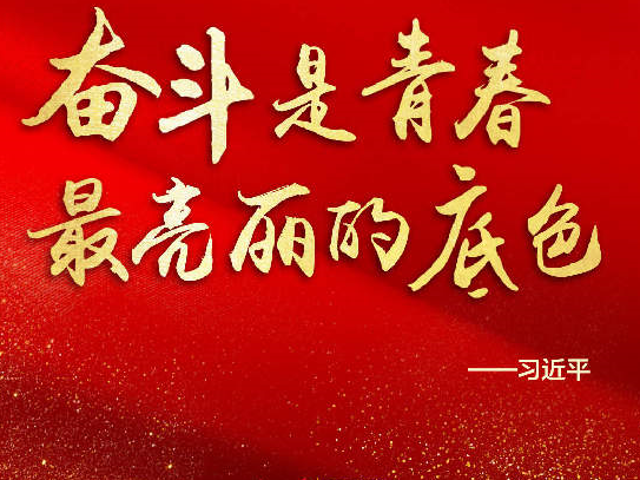 奋斗是青春
最亮丽的底色
——习近平